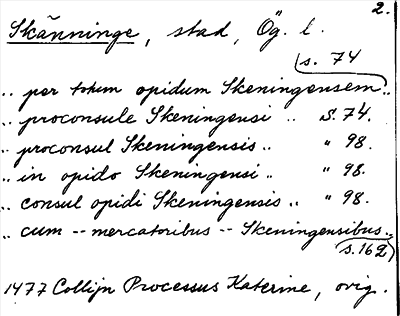 2.
Skänninge, stad, Ög. l.
s. 74
.. per totum opidum Skeningensem ..
.. proconsule Skeningensi .. S. 74.
.. proconsul Skeningensis .. " 98.
.. in opido Skeningensi .. " 98.
.. consul opidi Skeningensis .. " 98.
.. cum -- mercatoribus -- Skeningensibus ..
s. 162)
1477 Collijn Processus Katerine, orig.